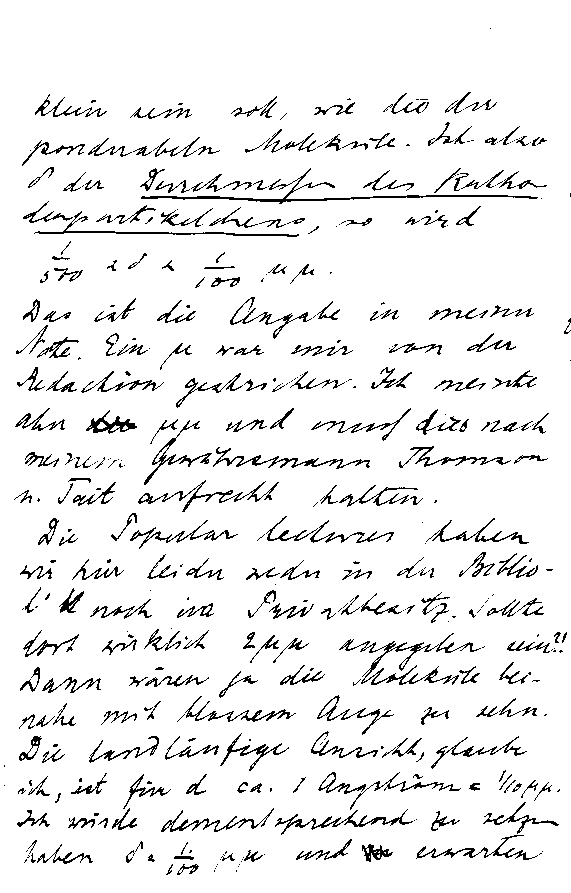 klein sein soll, wie die der
ponderabeln Moleküle. Ist also
δ der Durchmesser des Katho
denpartikelchens, so wird
1/500 < δ < 1/100 μμ.
Das ist die Angabe in meiner
Note. Ein μ war mir von der
Redaction gestrichen. Ich meinte
aber μμ und muss dies nach
meinem Gewährsmann Thomson
u. Tait aufrecht halten.
Die Popular lectures haben
wir hier leider weder in der Biblio-
noch im Privatbesitz. Sollte
dort wirklich 2μμ angegeben sein?!
Dann wären ja die Moleküle bei-
nahe mit blossem Auge zu sehn.
Die landläufige Ansicht, glaube
ich, ist für d ca. 1 Angström = 1/10 μμ.
Ich würde dementsprechend zu setzen
haben δ = 1/100 μμ und erwarten